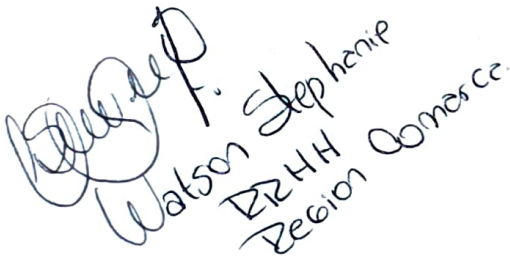 Watson Stephanie
RRHH
Region Comarca.